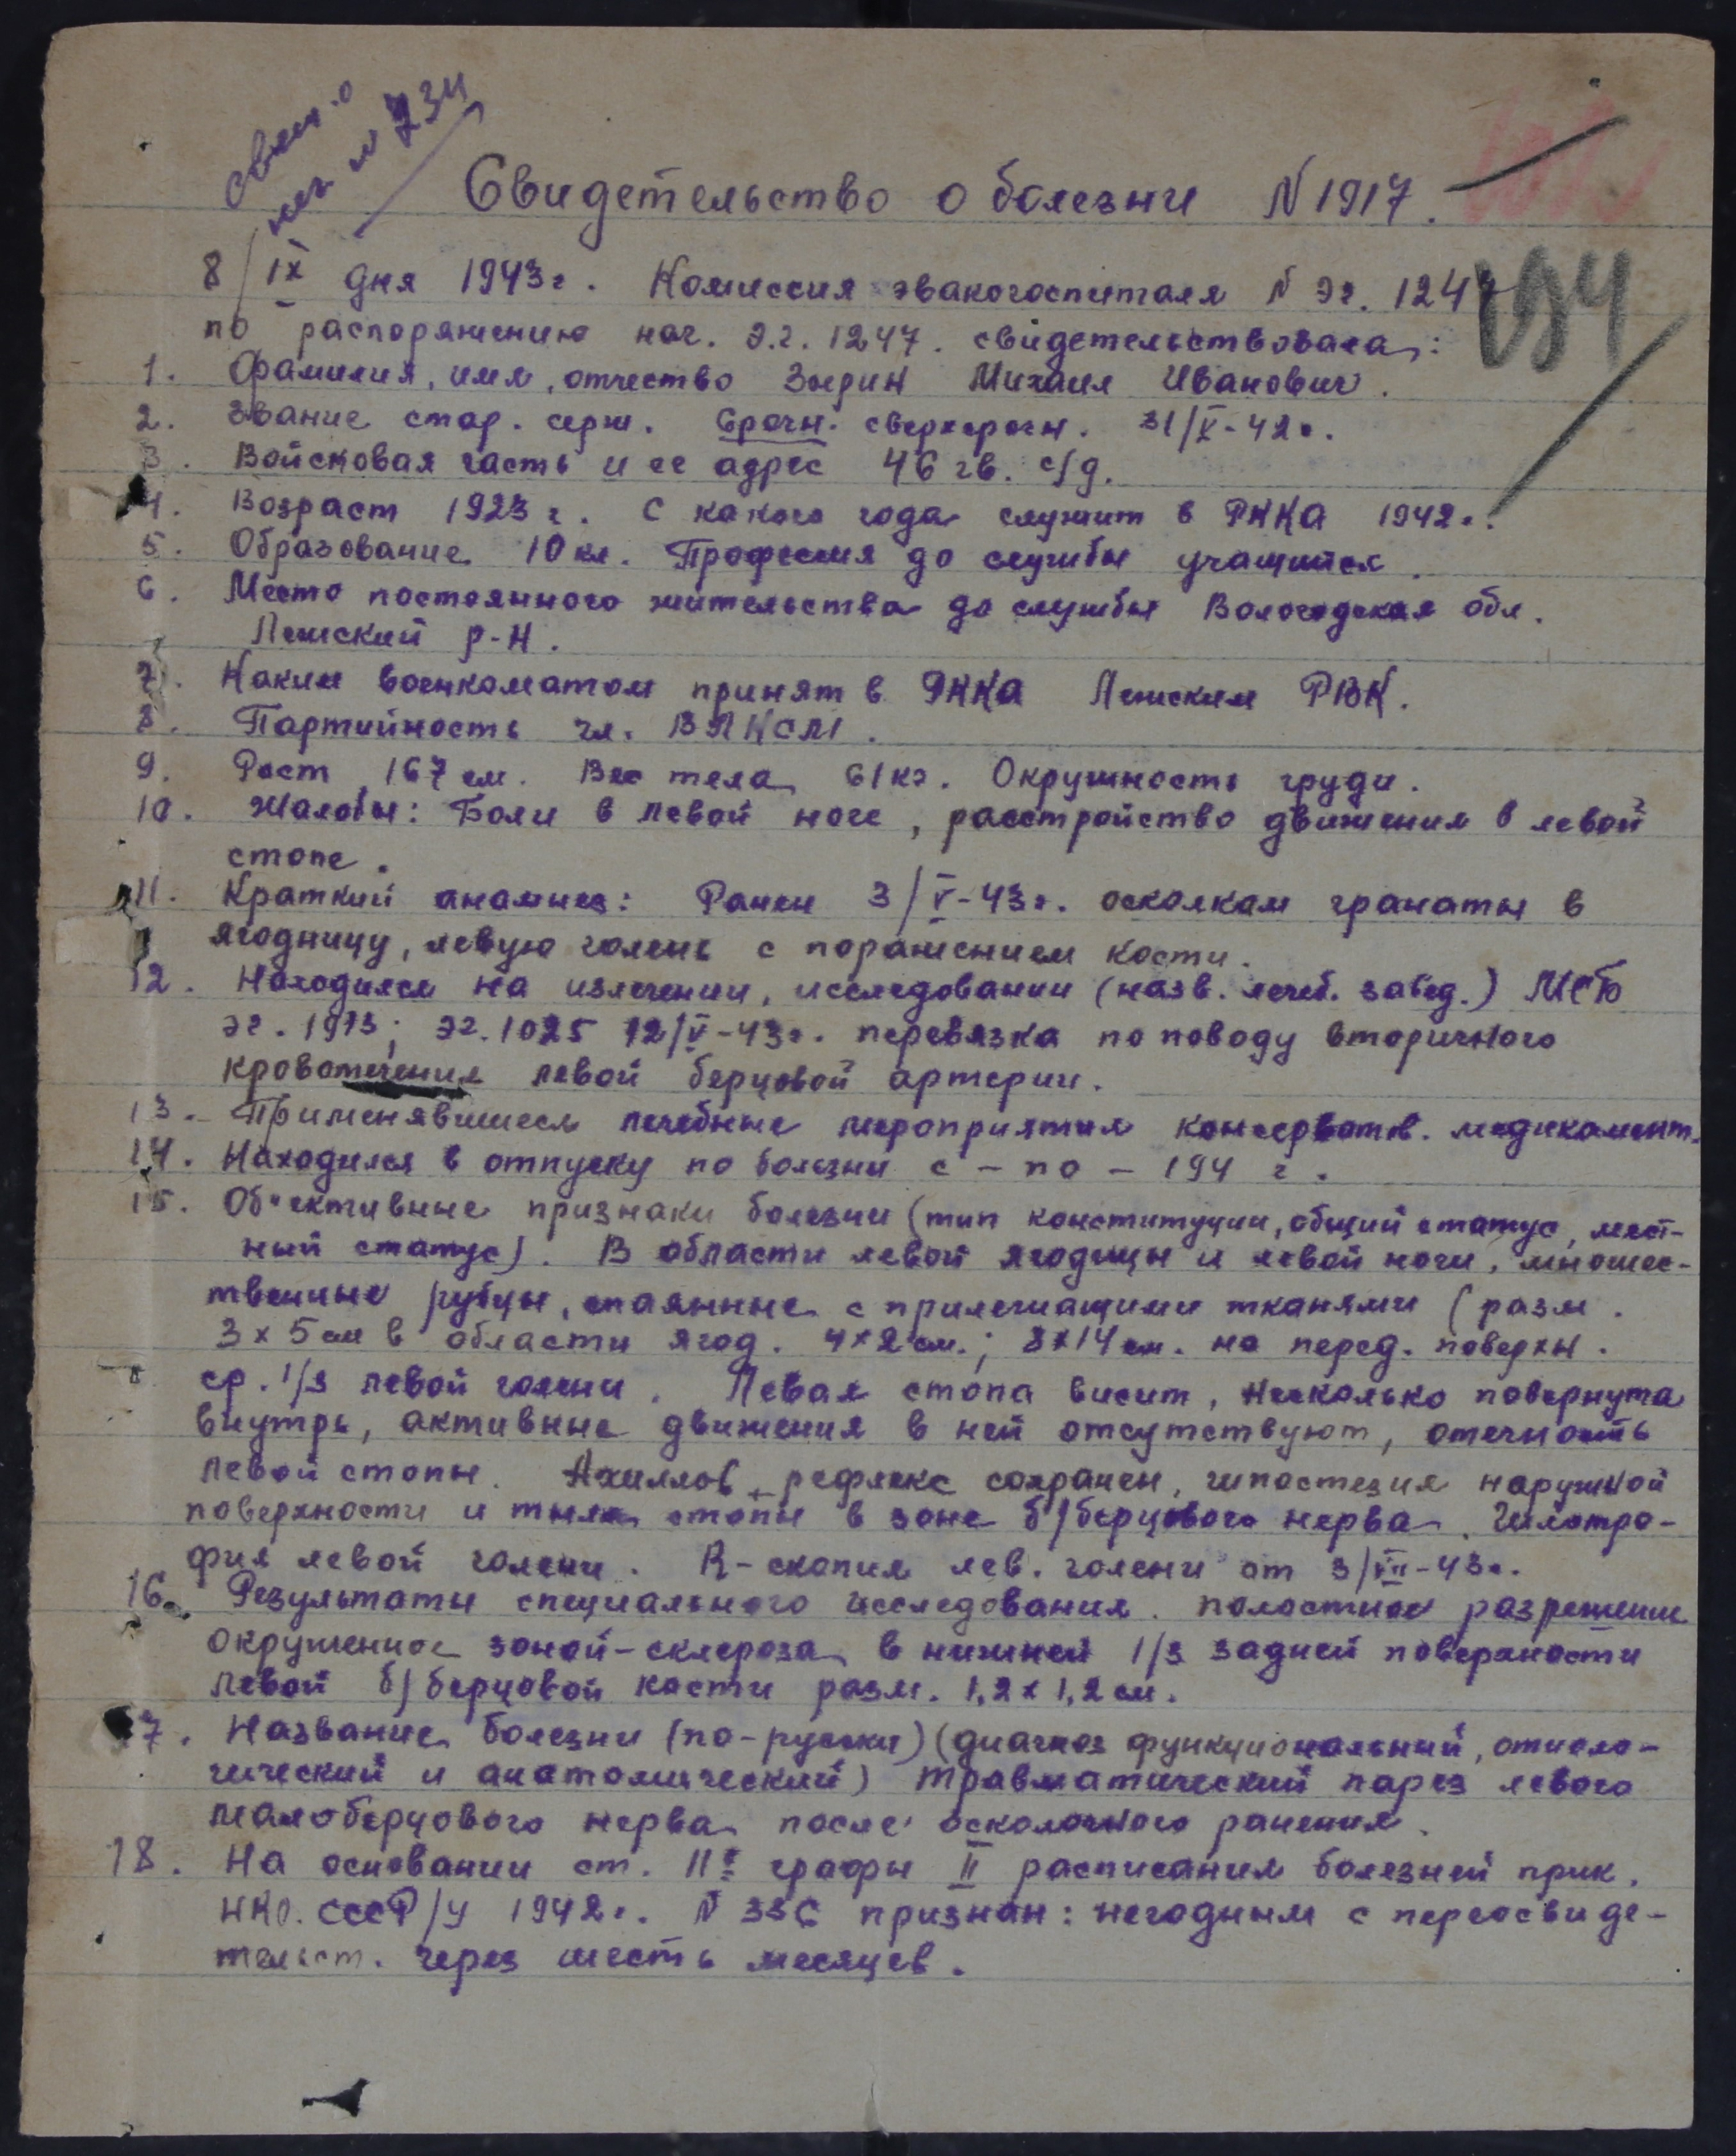 № 234
Свидетельство о болезни N 1917.
194
8/IX дня 1943г. Комиссия эвакогоспиталя N Эг. 1247
по распоряжению нач. э.г. 1247. свидетельствовала:
1. Фамилия, имя, отчество Михаил Иванович.
2. Звание стар. серж. Срочн. сверхсрочн. 31/V-42г.
3. Войсковая часть и ее адрес 46 гв. с/д.
4. Возраст 1923 г. С какого года служит в РККА 1942г.
5. Образование 10 кл. Професия до службы учащийся.
6. Место постоянного жительства до службы Вологодская обл.
Лежский р-н.
7. Каким военкоматом принят в РККА Лежским РВК.
8. Партийность чл. ВЛКСМ.
9. Рост 167 см. Вес тела 61кг. Окружность груди.
10. Жалобы: Боли в левой ноге, расстройство движения в левой
стопе.
11. Краткий анамнез: Ранен 3/V-43г. осколкам гранаты в
ягодницу, левую голень с поражением кости.
12. Находился на излечении, исследовании (назв. лечеб. завед.) МСБ
эг. 1973; эг. 1025 12/V-43г. перевязка по поводу вторичного
кровотечения левой берцовой артерии.
13. Применявшиеся лечебные мероприятия консерватив. медикамент.
14. Находился в отпуску по болезни с - по - 194 г.
15. Об"ективные признаки болезни (тип конституции, общий статус, мест-
ный статус). В области левой ягодицы и левой ноги, множес-
твенные рубцы, спаянные с прилежащими тканями (разм.
3 x 5 см в области ягод. 4x2 см.; 3x14 см. на перед. поверхн.
ср. 1/3 левой голени. Левая стопа висит, несколько повернута
внутрь, активные движения в ней отсутствуют, отечность
левой стопы. Ахиллов рефлекс сохранен, гипостезия наружной
поверхности и тыла стопы в зоне б/берцового нерва. Гипотро-
фия левой голени. R-скопия лев. голени от 3/VII-43г.
16. Результаты специального исследования. полостное разрежение
окруженное зоной-склероза в нижней 1/3 задней поверхности
левой б/берцовой кости разм. 1,2 x 1,2 см.
17. Название болезни (по-русски) (диагноз функциональный, этиоло-
гический и анатомический) травматический парез левого
малоберцового нерва после осколочного ранения.
18. На основании ст. графы II расписания болезней прик.
НКО. СССР/у 1942г. N 336 признан: негодным с переосвиде-
тельст. через шесть месяцев.